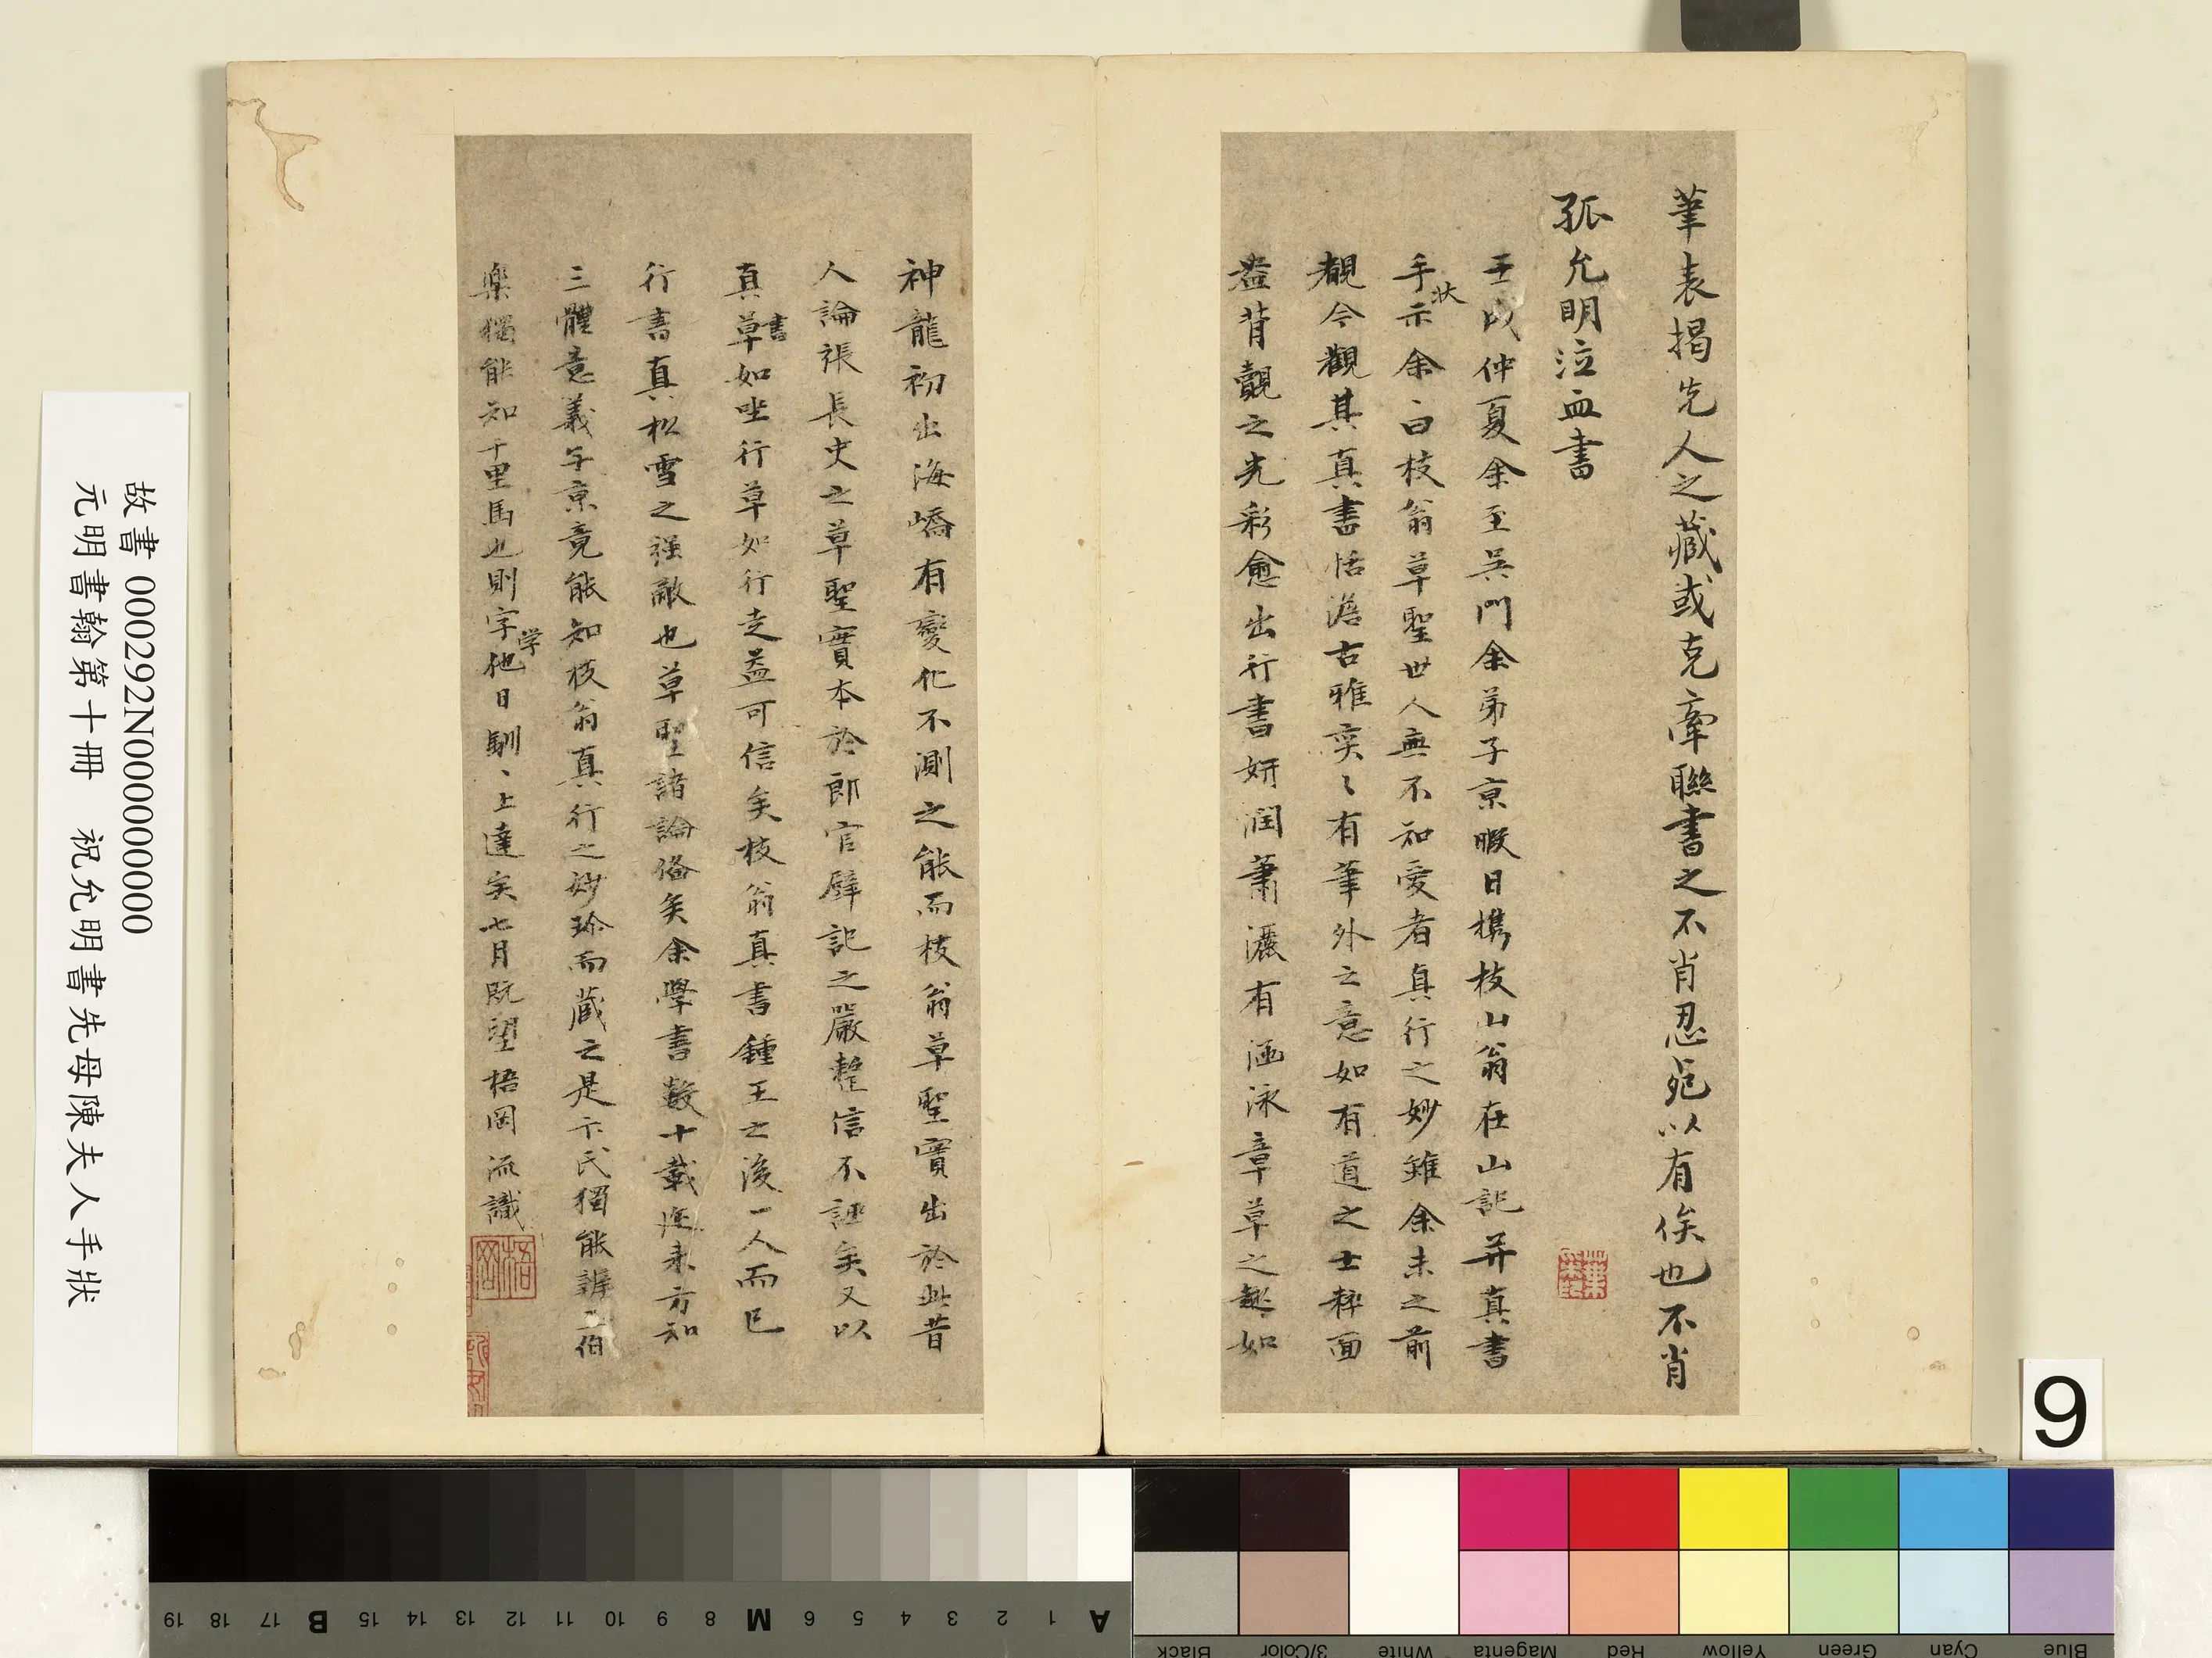 筆表揭先人之藏或克牽聯書之不肖忍死以有俟也不肖
孤允明泣血書
壬戌仲夏余至吳門余弟子京暇日携枝山翁在山記并真書
手狀示余白枝翁草聖世人無不知愛者真行之妙雖余未之前
覩今觀其真書恬澹古雅奕〻有筆外之意如有道之士粹面
盎背覿之光彩愈出行書妍潤蕭灑有涵泳章草之趣如
神龍初出海嶠有變化不測之能而枝翁草聖實出於此昔
人論張長史之草聖實本於郎官壁記之嚴整信不誣矣又以
真書草如坐行草如行走益可信矣枝翁真書鍾王之後一人而已
行書真松雪之強敵也草聖諸論俻矣余學書數十載迩来方知
三體意義子京竟能知枝翁真行之妙珍而藏之是卞氏獨能辨玉伯
樂獨能知千里馬也則字学他日駸〻上達矣七月既望梧岡 識
梧岡
故書 000292N000000000
元明書翰第十冊 祝允明書先母陳夫人手狀
9
A 1 2 3 4 5 6 M 8 9 10 11 12 13 14 15 B 17 18 19
Black 3/Color White Magenta Red Yellow Green Cyan Blue